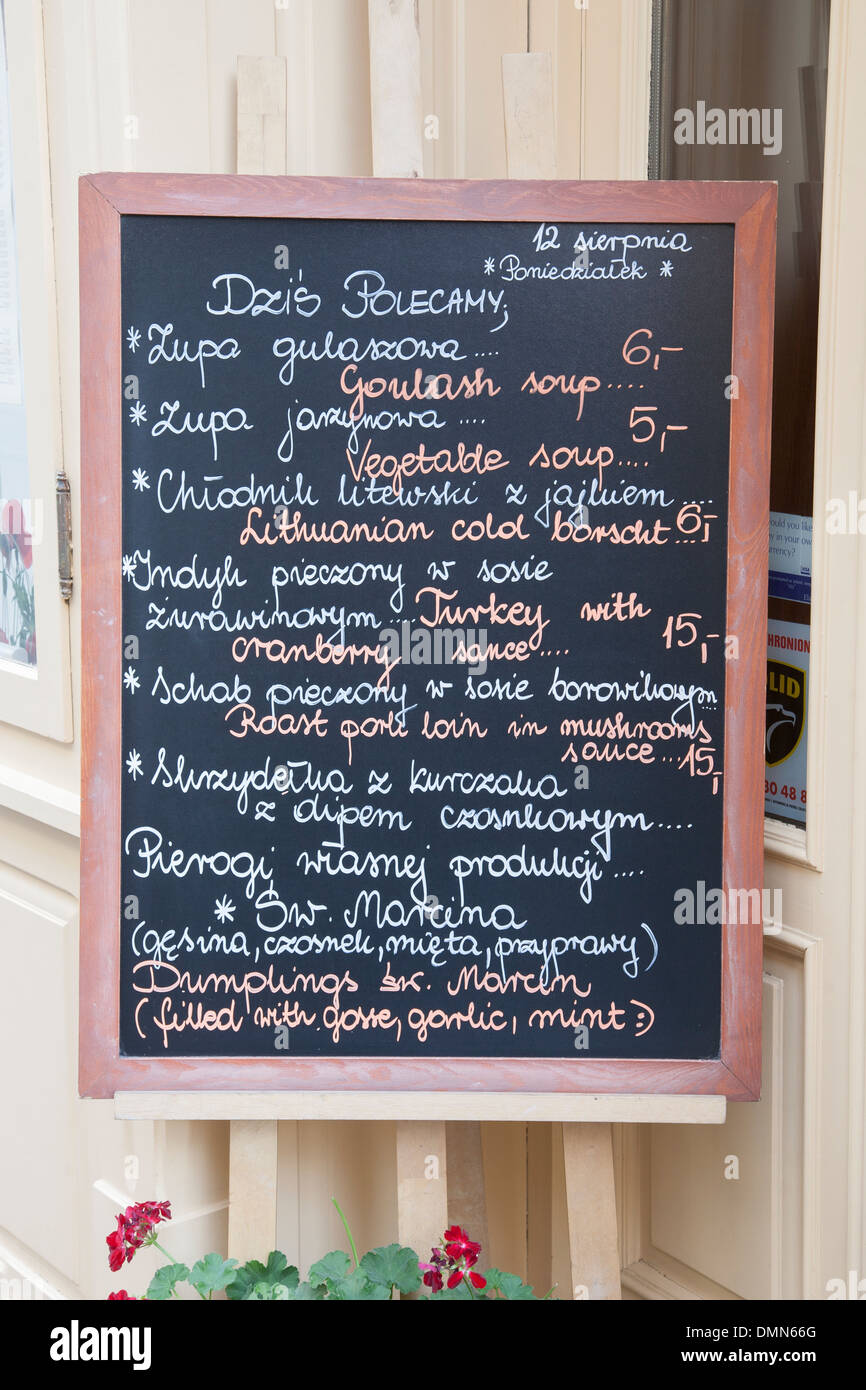 12 sierpnia
* Poniedziałek *
Dziś POLECAMY;
* Zupa gulaszowa .... 6,-
Goulash soup .....
* Zupa jarzynowa .... 5,-
Vegetable soup....
* Chłodnik litewski z jajkiem ....
Lithuanian cold borscht ... 6,-
* Indyk pieczony w sosie
żurawinowym .... Turkey with
cranberry sauce .... 15,-
* Schab pieczony w sosie borowikowym
Roast pork loin in mushrooms
sauce ... 15,-
* Skrzydełka z kurczaka
z dipem czosnkowym ....
Pierogi własnej produkcji ....
* Św. Marcina
(gęsina, czosnek, mięta, przyprawy)
Dumplings św. Marcin
(filled with gosse, garlic, mint :)
ould you like
y in your own
urrency?
VISA
CHRONION
LID
30 48 8
alamy
a
alamy stock photo
DMN66G
www.alamy.com